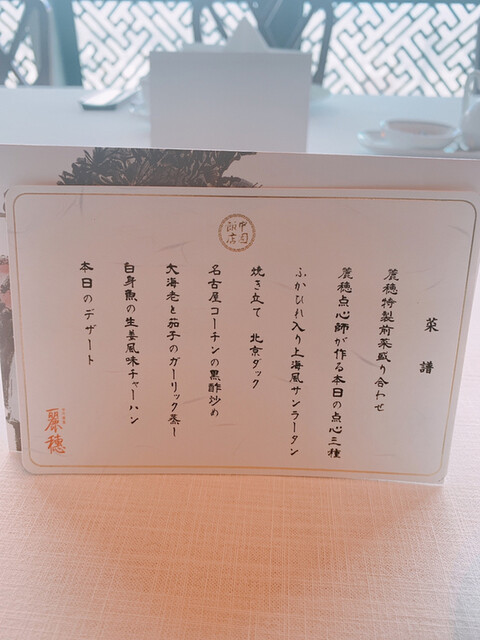 菜譜
麗穂特製前菜盛り合わせ
麗穂点心師が作る本日の点心三種
ふかひれ入り上海風サンラータン
焼き立て 北京ダック
名古屋コーチンの黒酢炒め
大海老と茄子のガーリック蒸し
白身魚の生姜風味チャーハン
本日のデザート
中国
飯店
麗穂